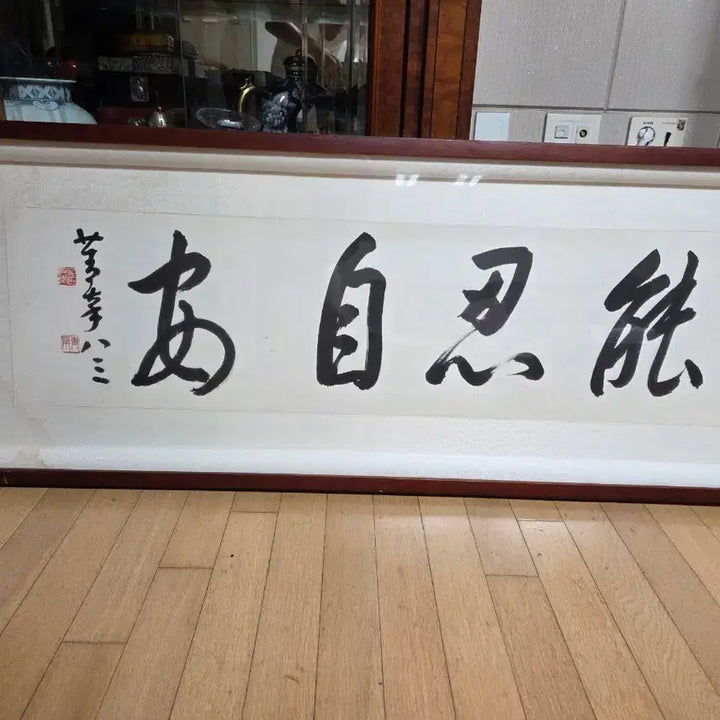 能忍自安
八三